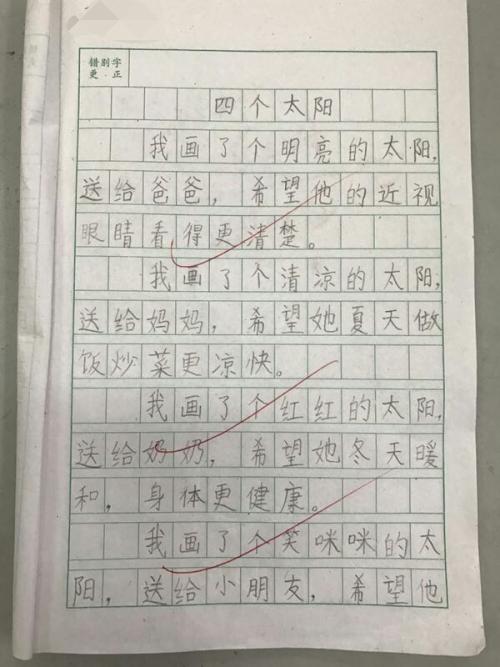 错别字
更 正
四个太阳
我画了个明亮的太阳,
送给爸爸,希望他的近视
眼睛看得更清楚。
我画了个清凉的太阳,
送给妈妈,希望她夏天做
饭炒菜更凉快。
我画了个红红的太阳,
送给奶奶,希望她冬天暖
和,身体更健康。
我画了个笑咪咪的太
阳,送给小朋友,希望他